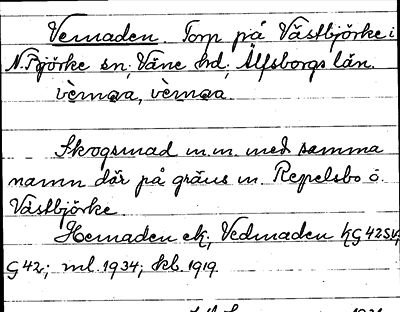 Vemaden. Torp på Västbjörke i
N. Björke sn; Väne hd; Älfsborgs län.
vèmɑa, vèmɑa.
Skogsmad m.m. med samma
namn där på gräns m. Repelsbo o.
Västbjörke
Hemaden ek; Vedmaden kG42SV;
G42; ml. 1934; kb. 1919.